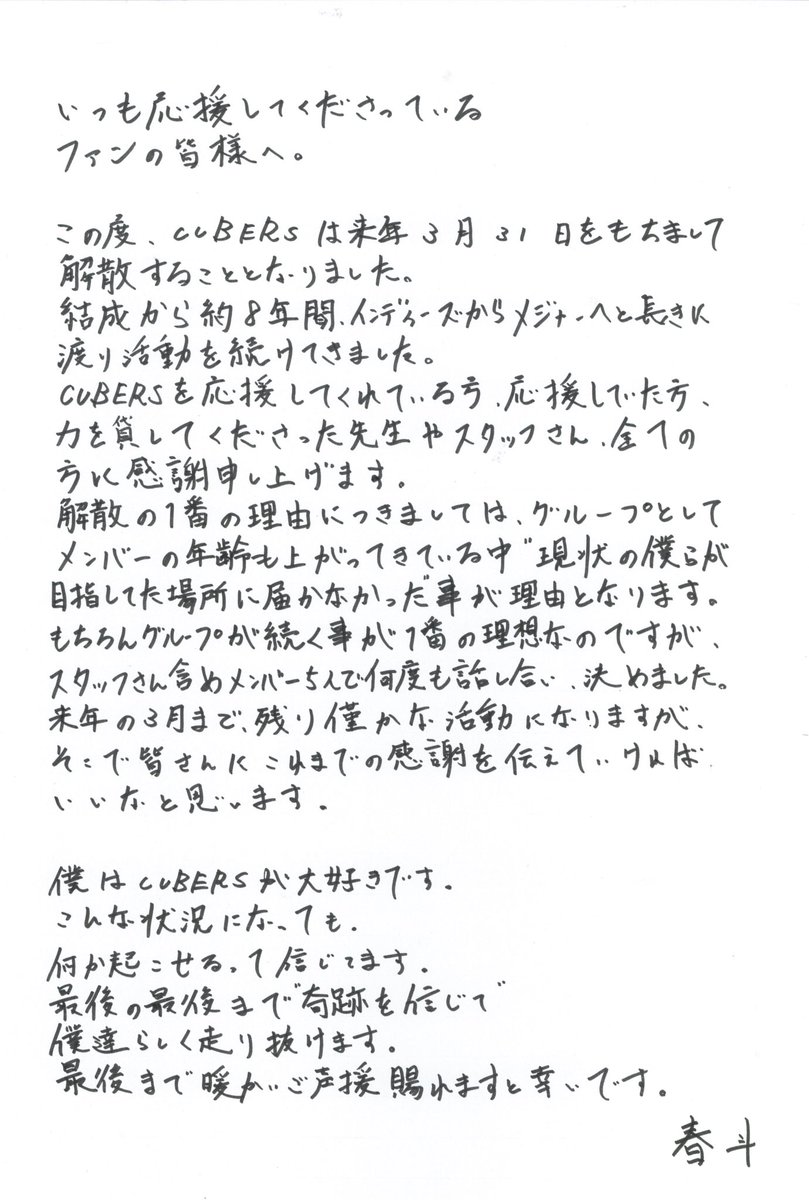 いつも応援してくださっている
ファンの皆様へ。
この度、CUBERSは来年3月31日をもちまして
解散することとなりました。
結成から約8年間、インディーズからメジャーへと長きに
渡り活動を続けてきました。
CUBERSを応援してくれている方、応援していた方、
力を貸してくださった先生やスタッフさん、全ての
方に感謝申し上げます。
解散の1番の理由につきましては、グループとして
メンバーの年齢も上がってきている中"現状の僕らが
目指してた場所に届かなかった"事が理由となります。
もちろんグループが続く事が1番の理想なのですが、
スタッフさん含めメンバー5人で何度も話し合い、決めました。
来年の3月まで、残り僅かな活動になりますが、
そこで皆さんにこれまでの感謝を伝えていければ
いいなと思います。
僕はCUBERSが大好きです。
こんな状況になっても、
何か起こせるって信じてます。
最後の最後まで奇跡を信じて
僕達らしく走り抜けます。
最後まで暖かいご声援賜れますと幸いです。
春斗